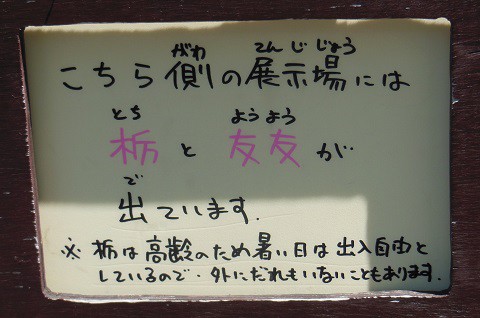 がわ てんじじょう
こちら側の展示場には
とち ようよう
栃と友友が
で
出ています.
※栃は高齢のため暑い日は出入自由と
しているので・外にだれもいないこともあります.